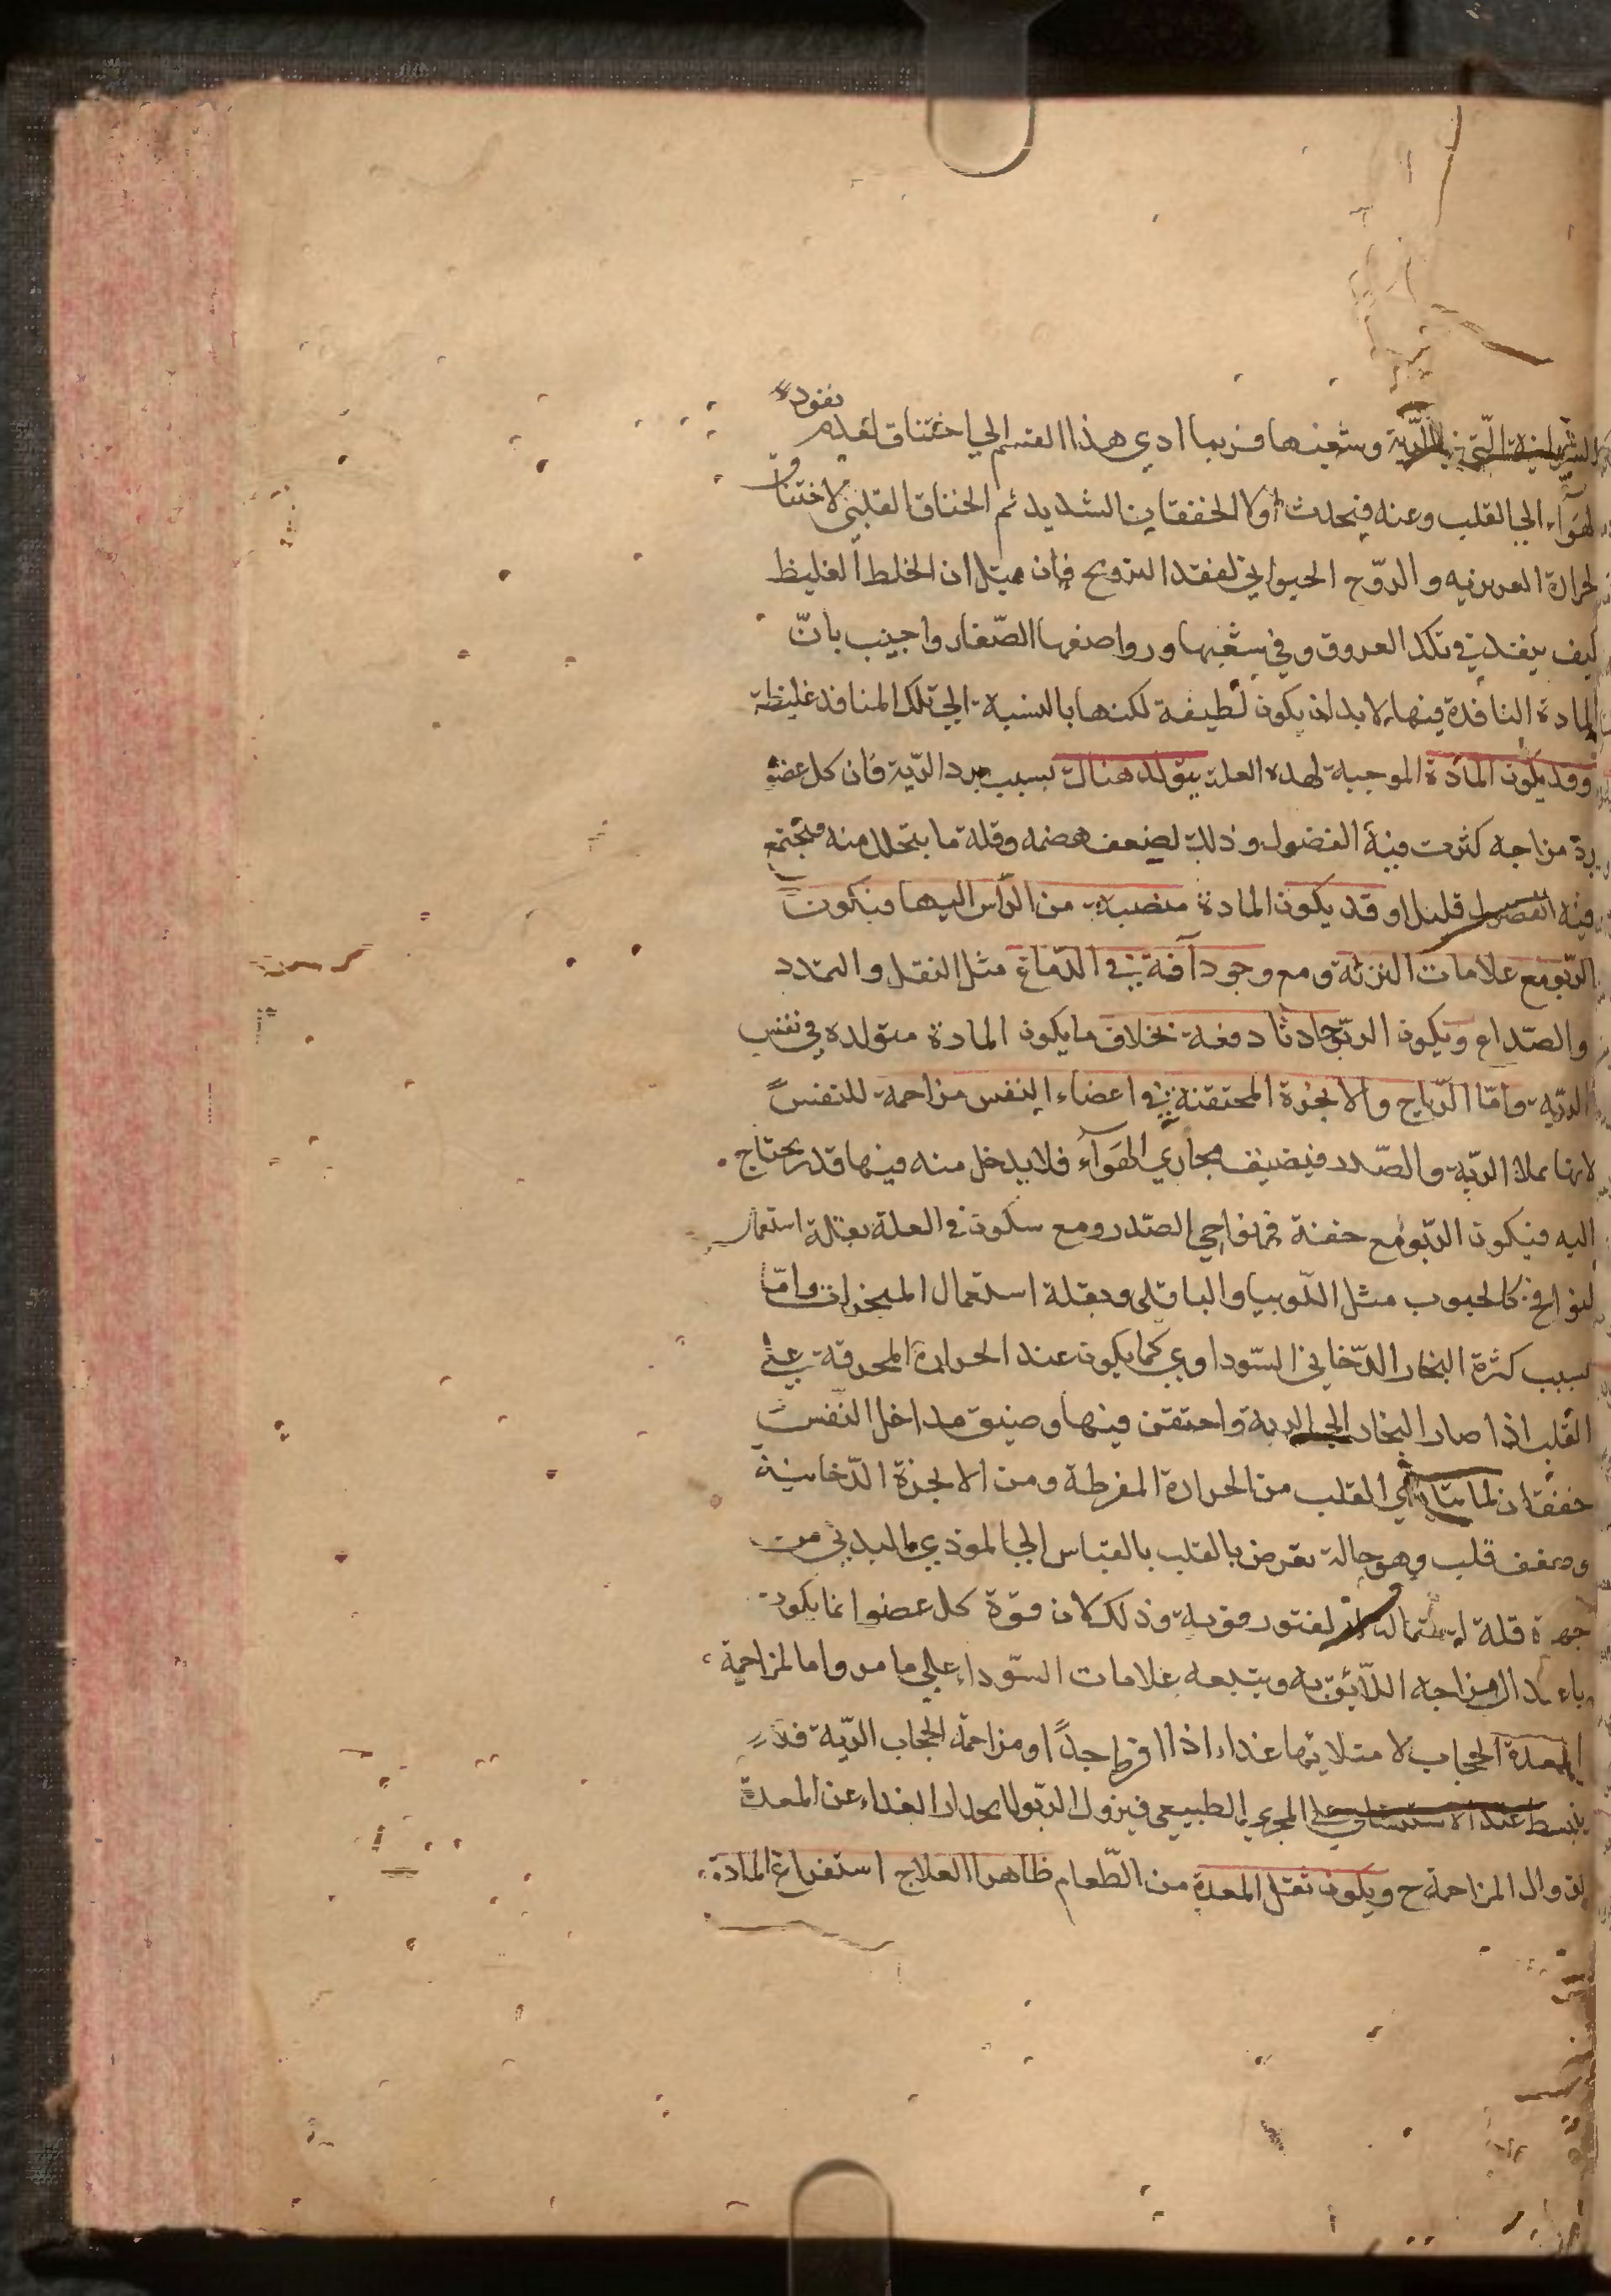 الشريانية التي في الرية وشعبها فربما ادي هذا القسم الي اختناق لعدم نفوذ
الهوآء الي القلب وعنه فيحدث اولا الخفقان الشديد ثم الخناق القلبي لاختناق
الحرارة الغريزيه والروّح الحيواني لفقد الترويح فان قيل ان الخلط الغليظ
كيف ينفذ في تلك العروق وفي شعبها ورواضعها الصّغار واجيب بانّ
المادة النافذة فيها لا بد ان يكون لطيفة لكنها بالنسبة الي تلك المنافذ غليظة
وقد يكون المادة الموجبة لهذه العلة يتولد هناك بسبب برد الرّية فان كل عضو
برد مزاجه كثرت فيه الفضول وذلك لضعف هضمه وقلة ما يتحلل منه فيجتمع
فيه الفضول قليلا وقد يكون المادة منصبة من الرأس اليها فيكون
الرّبو مع علامات النزلة ومع وجود آفة في الدّماغ مثل الثقل والتمدد
والصّداع ويكون الربو حادثا دفعة بخلاف ما يكون المادة متولدة في نفس
الرّيه وامّا الرّياح والابخرة المحتقنة في اعضاء النفس مزاحمة للنفس
لانها تملا الرّية والصّدر فيضيف مجاري الهوآء فلا يدخل منه فيها قدر يحتاج
اليه فيكون الرّبو مع خفة في نواحي الصّدر ومع سكون في العلة بقلة استعمال
النوافخ كالحبوب مثل اللّوبيا والباقلي وبقلة استعمال المبخرات وامّا
بسبب كثرة البخار الدّخاني السّوداوي كما يكون عند الحرارة المحرقة في
القلب اذا صار البخار الي الرية واحتقن فيها وضيق مداخل النّفس
خفقان لما يتاذي القلب من الحرارة المفرطة ومن الابخرة الدّخانية
وضعف قلب وهو حالة تعرض بالقلب بالقياس الي الموذي البدني من
جهة قلة احتماله لفتور قوته وذلك لان قوة كل عضو انما يكون
باعتدال مزاجه اللّائق به ويتبعه علامات السّوداء علي ما مر واما لمزاحمة
المعدة الحجاب لامتلائها غذاء اذا افرط جدًّا ومزاحمة الحجاب الرّية فلا
ينبسط عند الاستنشاق علي المجري الطبيعي فيزول الرّبو بانحدار الغذاء عن المعدة
لزوال المزاحمة ح ويكون ثقل المعدة من الطّعام ظاهرا العلاج استفراغ المادة